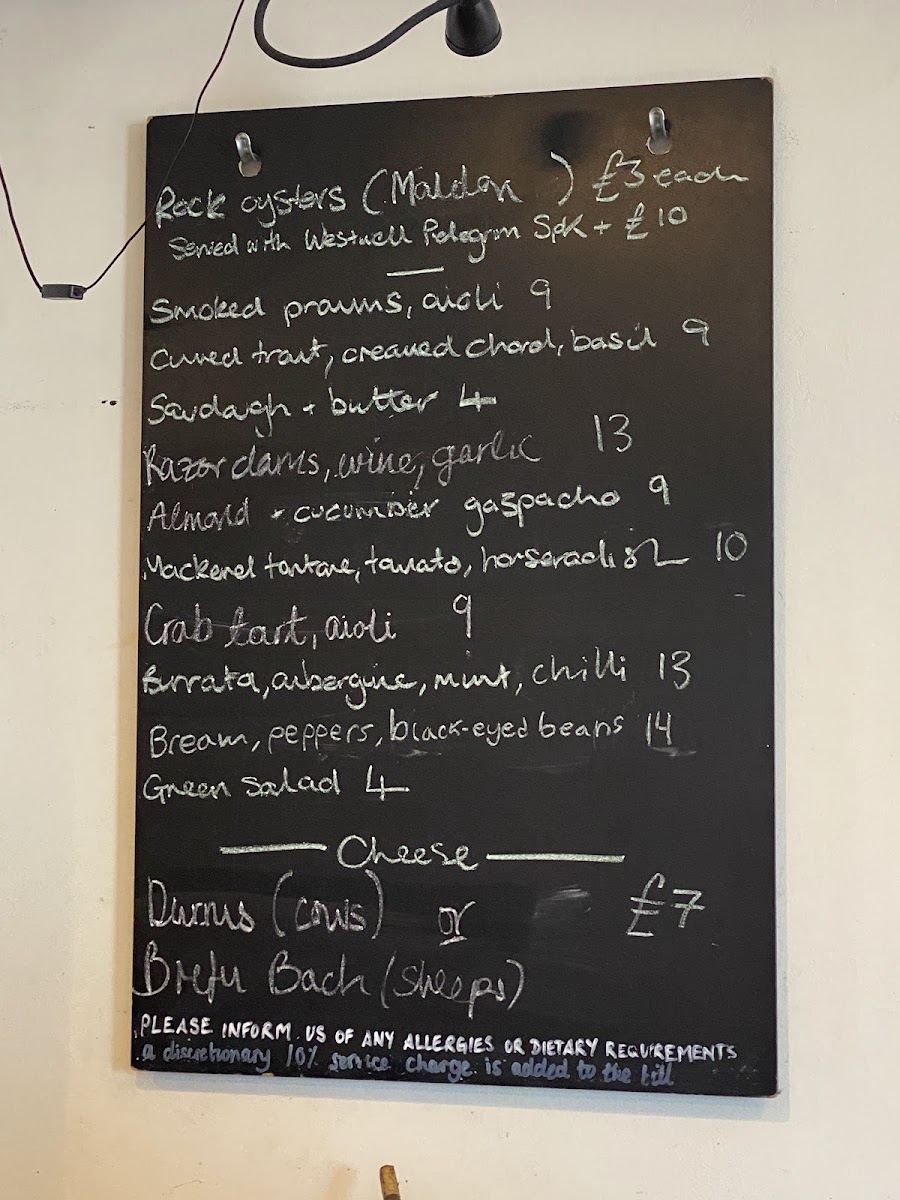 Rock oysters (Maldon ) £3 each
Served with Westwell Pelegrim Spk + £10
Smoked prawns, aioli 9
Cured trout, creamed chard, basil 9
Sourdough + butter 4
Razor clams, wine, garlic 13
Almond + cucumber gazpacho 9
Mackerel tartare, tomato, horseradish 10
Crab tart, aioli 9
Burrata, aubergine, mint, chilli 13
Bream, peppers, black-eyed beans 14
Green salad 4
Cheese
Durrus (cows) or £7
Brefu Bach (sheeps)
PLEASE INFORM US OF ANY ALLERGIES OR DIETARY REQUIREMENTS
a discretionary 10% service charge is added to the bill